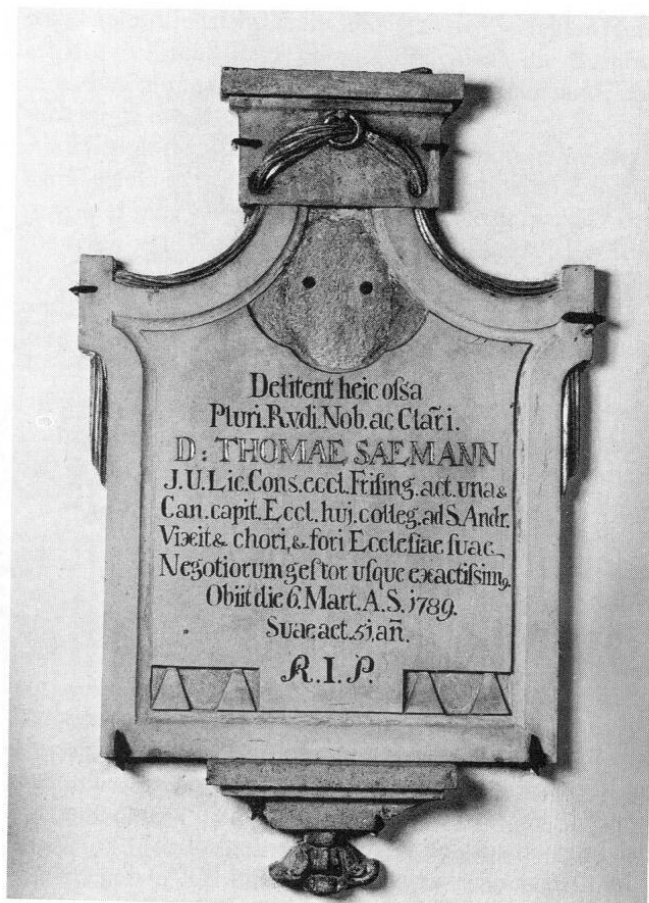 Delitent heic oſsa
Pluri.Rvdi.Nob.ac Clari.
D: THOMAE SAEMANN
J.U.Lic.Cons.eccl.Friſing.act.una&
Can.capit.Eccl.huj.colleg.ad S.Andr.
Vixit & chori,& fori Eccleſiae ſuae
Negotiorum geſtor uſque exactiſsim9
Obiit die 6.Mart.A.S.1789.
Suae aet.51.an̄.
R.I.P.